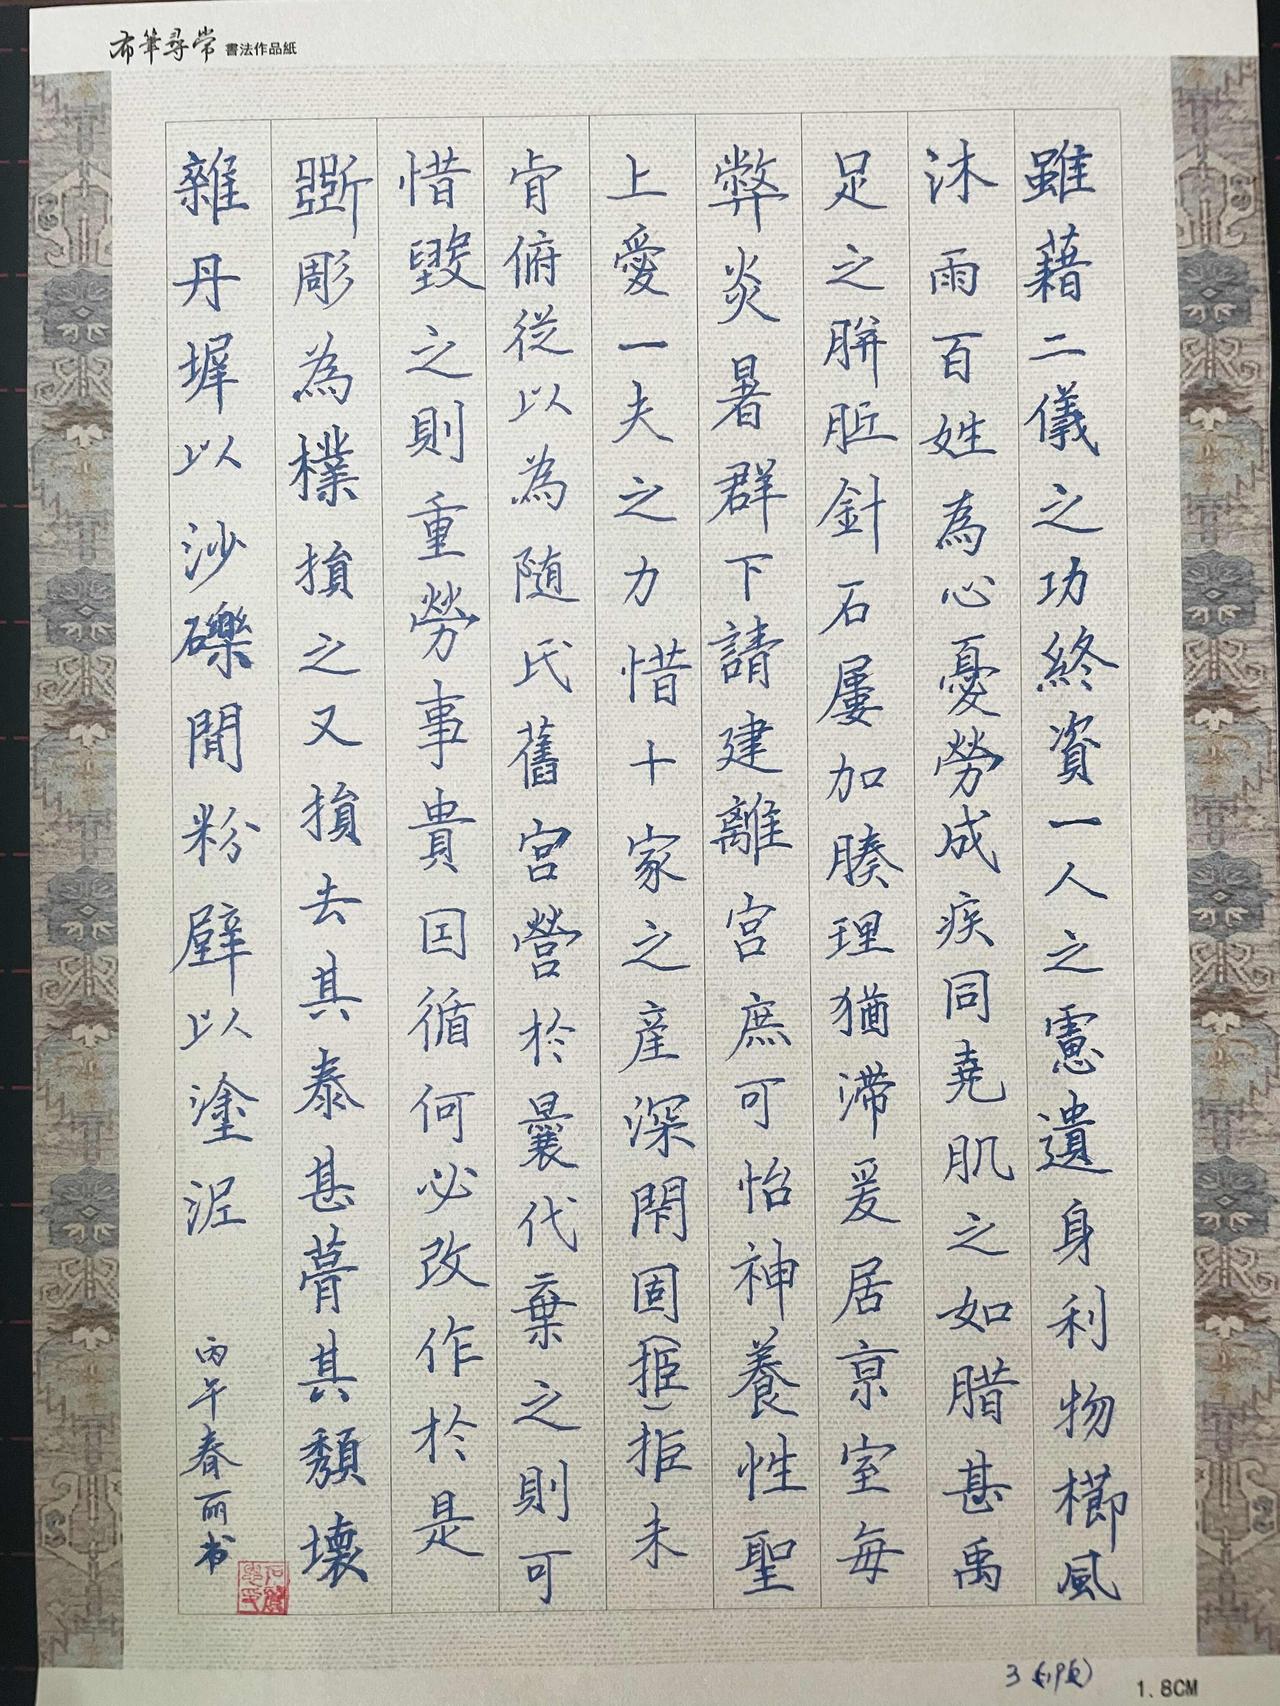 布筆尋常 書法作品紙
雖藉二儀之功終資一人之慮遺身利物櫛風
沐雨百姓為心憂勞成疾同堯肌之如腊甚禹
足之胼胝針石屢加腠理猶滞爰居京室每
弊炎暑群下請建離宮庶可怡神養性聖
上愛一夫之力惜十家之產深閇固(拒)拒未
肯俯從以為随氏舊宮營於曩代棄之則可
惜毀之則重勞事貴因循何必改作於是
斵彫為樸損之又損去其泰甚葺其頹壞
雜丹墀以沙礫間粉壁以塗泥
丙午春丽书
1.8CM